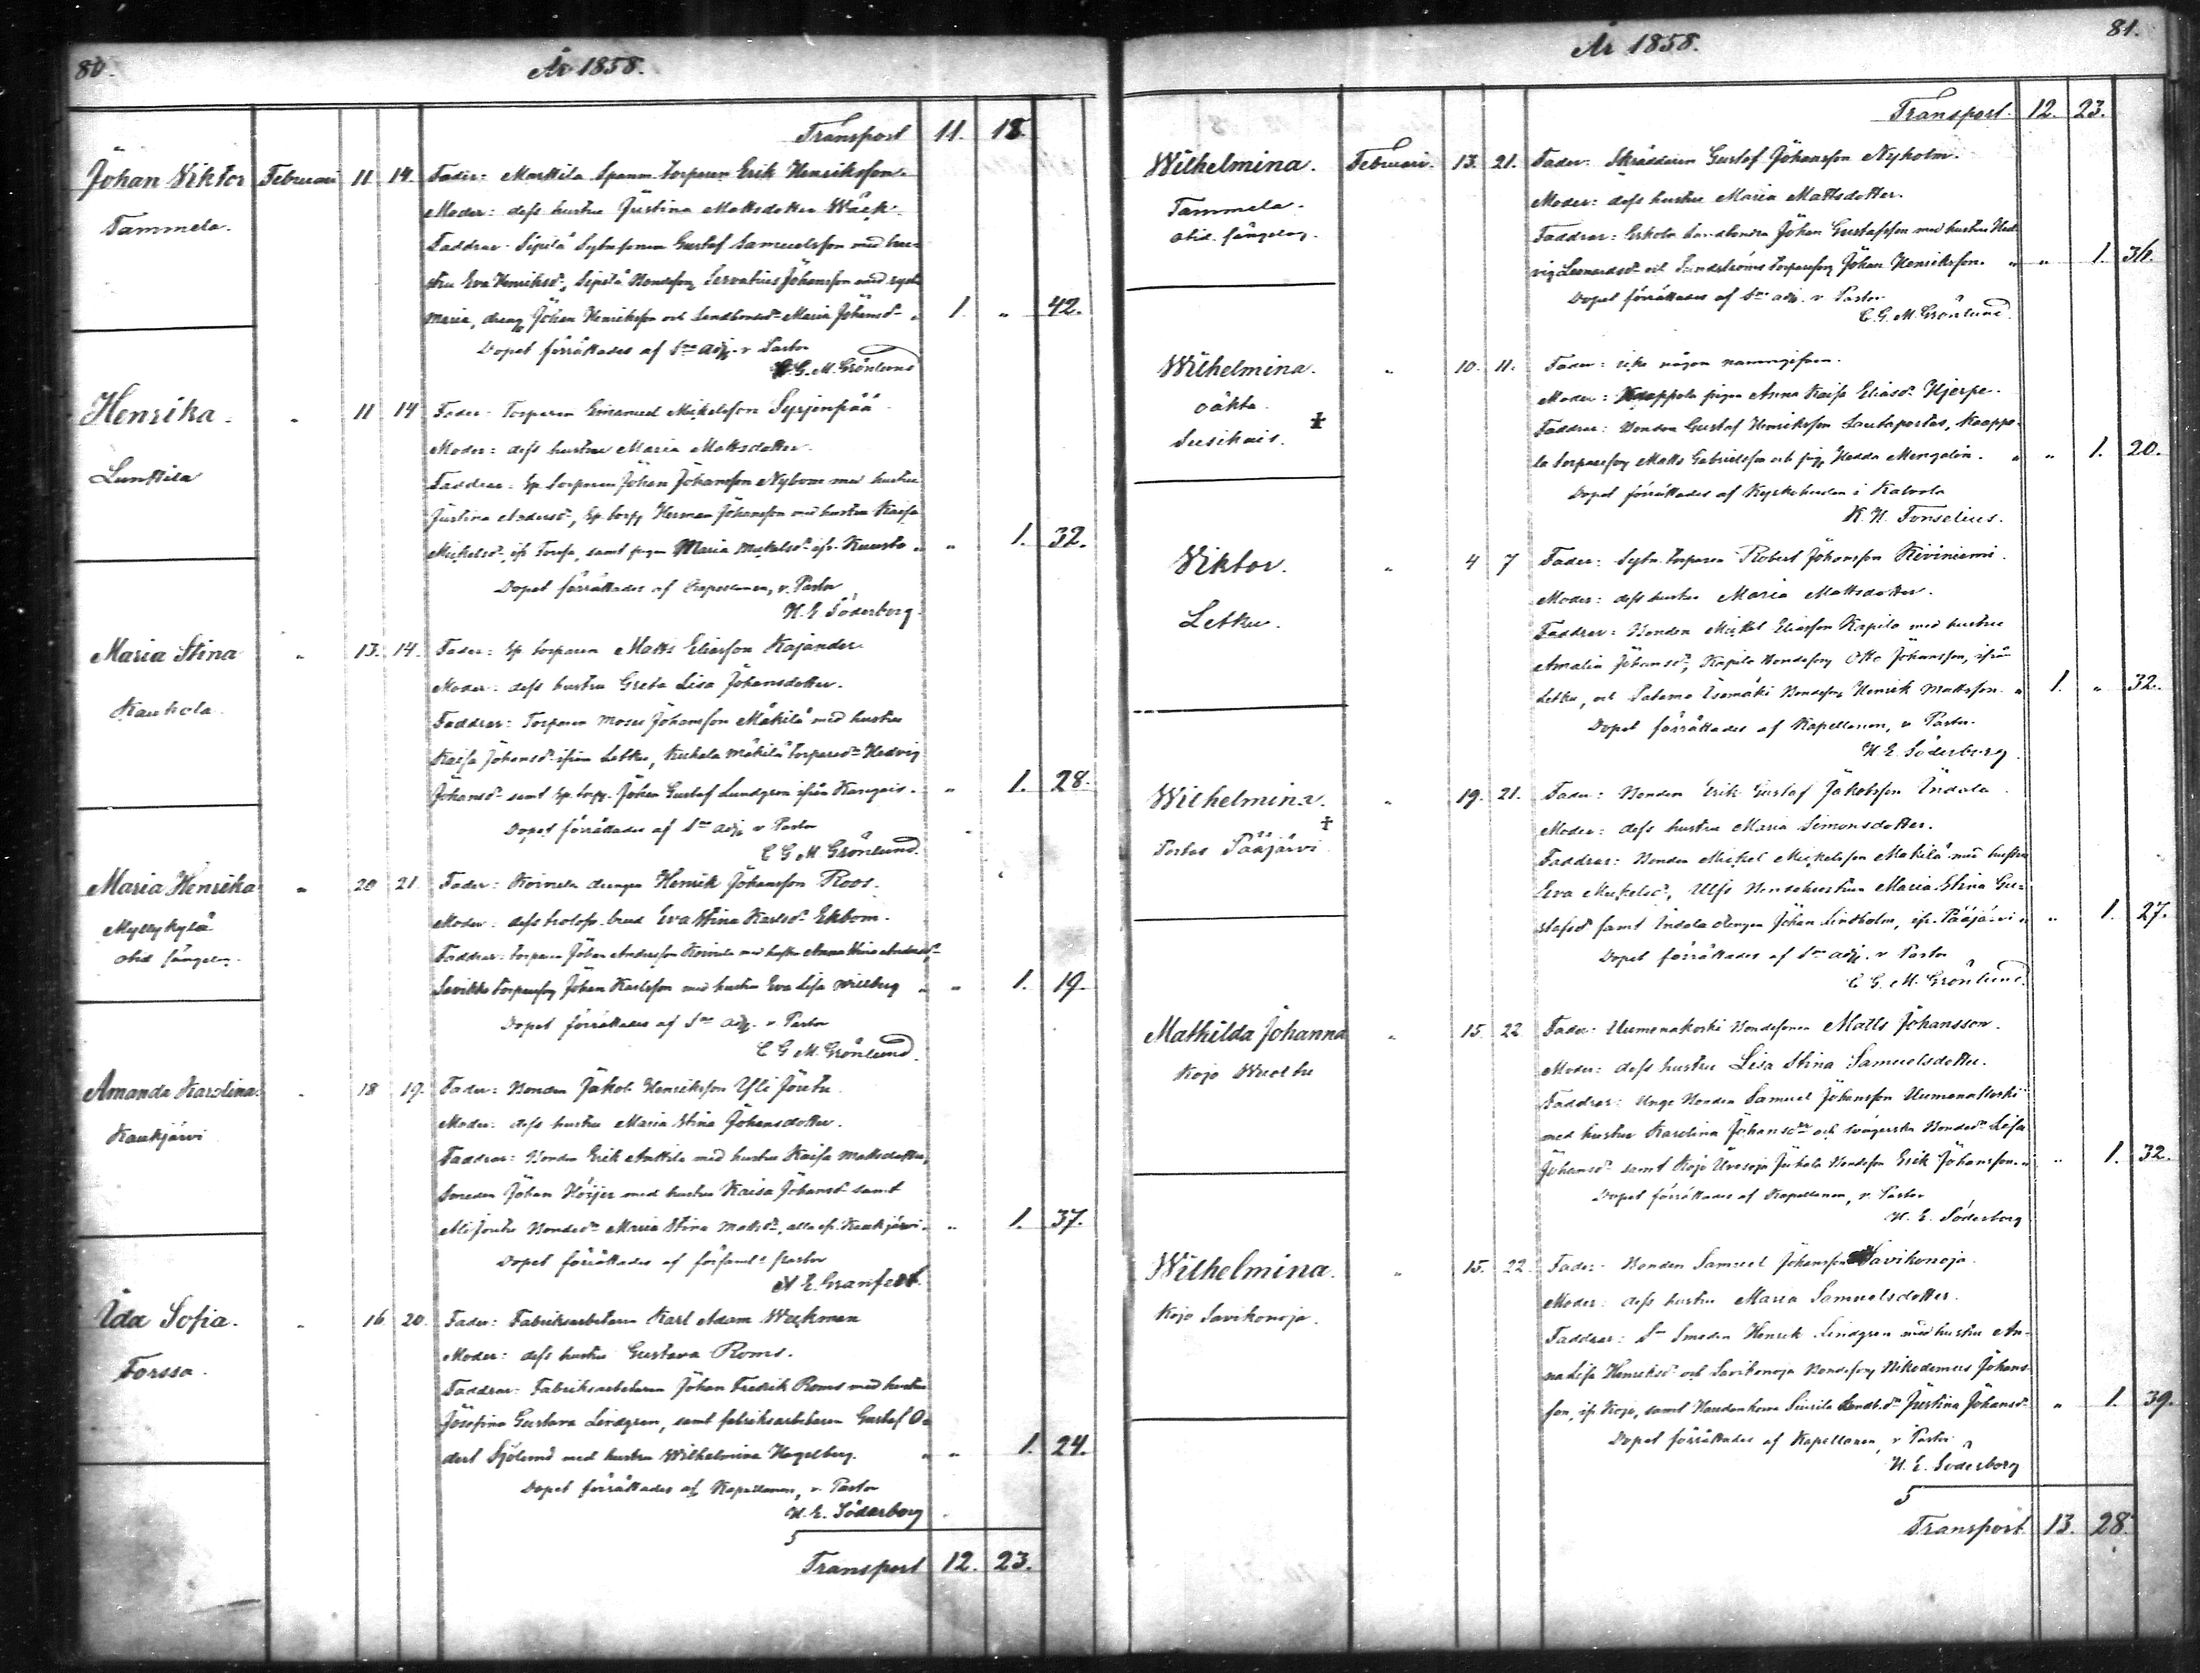 80.
År 1858.
Transport 11. 18.
Johan Viktor Februari 11 14. Fader: Markkila Spanm. torparen Erik Henriksson.
Tammela.
Moder: dess hustru Justina Mattsdotter Wäck.
Faddrar: Sipilä Sytn.sonen Gustaf Samuelsson med hu-
stru Eva Henriksdr, Sipilä Bondeson Servatius Johansson med syst.
Maria, dreng Johan Henriksson och Landbondr Maria Johansdr " 1. " 42.
Dopet förrättades af Sne adj. v Pastor
C. G. M. Grönlund
Henrika. " 11 14 Fader: Torparen Emanuel Mickelsson Syrjänpää.
Lunttila
Moder: dess hustru Maria Mattsdotter.
Faddrar: Sp. torparen Johan Johansson Nybom med hustru
Justina Andersdr, Sp. torp. Herman Johansson med hustru Kaisa
Mickelsdr, ifr. Torsa, samt pigan Maria Mickelsdr ifr. Kuusto " " 1. 32.
Dopet förrättades af Capellanen, v. Pastor
H. E. Söderborg.
Maria Stina " 13. 14. Fader: Sp. torparen Matts Eliasson Kajander.
Kaukola.
Moder: dess hustru Greta Lisa Johansdotter.
Faddrar: Torparen Moses Johansson Mäkilä med hustru
Kaisa Johansdr ifrån Letku, Mäkilä torparedr Hedvig
Johansdr samt Sp. torp. Johan Gustaf Lundgren ifrån Kangais. " 1. 28.
Dopet förrättades af Sne adj. v Pastor
C G M Grönlund.
Maria Henrika " 20 21. Fader: Koivula drengen Henrik Johansson Roos.
Myllykylä
Moder: dess trolofv. brud Eva Stina Karlsdr Ekbom.
Faddrar: torparen Johan Andersson Koivula med hustru Anna Stina Andersdr
Savikko torpareson Johan Karlsson med hustru Eva Lisa Willberg " " 1. 19.
Dopet förrättades af Sne adj. v Pastor
C G M Grönlund.
Amanda Karolina. " 18 19. Fader: Bonden Jakob Henriksson Yli Jontu.
Kaukjärvi
Moder: dess hustru Maria Stina Johansdotter.
Faddrar: Bonden Erik Anttila med hustru Kaisa Mattsdotter,
Smeden Johan Höijer med hustru Kaisa Johansdr samt
Ali Jontu Bondedr Maria Stina Mattsdr, alla ifr. Kaukjärvi. " 1. 37.
Dopet förrättades af församl:s pastor
A E. Granfelt.
Ida Sofia. " 16 20. Fader: Fabriksarbetaren Karl Adam Weckman
Forssa.
Moder: dess hustru Gustava Roms.
Faddrar: Fabriksarbetaren Johan Fredrik Roms med hustru
Josefina Gustava Lindgren, samt fabriksarbetaren Gustaf O-
dert Sjölund med hustru Wilhelmina Hagelberg. " " 1. 24.
Dopet förrättades af Kapellanen, v. Pastor
H. E. Söderborg
5
Transport 12. 23.
81.
År 1858.
Transport. 12. 23.
Wilhelmina. Februari. 13. 21. Fader: Skräddaren Gustaf Johansson Nyholm.
Tammela.
Moder: dess hustru Maria Mattsdotter.
Faddrar: Eskola Landbonden Johan Gustafsson med hustru Hed-
vig Leonardsdr och Sundströms torpareson Johan Henriksson. " " 1. 36.
Dopet förrättades af Sne adj. v Pastor
C. G. M. Grönlund.
Wilhelmina. " 10. 11. Fader: icke någon namngifven.
oäkta.
Susikais. †
Moder: Kaappola pigan Anna Kaisa Eliasdr Hjerpe.
Faddrar: Bonden Gustaf Henriksson Sautaportas, Kaappo-
la torpareson Matts Gabrielsson och pig. Hedda Mengalén. " " 1. 20.
Dopet förrättades af Kyrkoherden i Kalvola
K. H. Fonselius.
Viktor. " 4 7 Fader: Sytn. torparen Robert Johansson Kiviniemi.
Letku.
Moder: dess hustru Maria Mattsdotter.
Faddrar: Bonden Mickel Eliasson Kapila med hustru
Amalia Johansdr, Kapila Bondeson Otto Johansson, ifrån
Letku, och Patamo Isomäki Bondeson Henrik Mattsson. " 1. " 32.
Dopet förrättades af Kapellanen, v Pastor.
H. E. Söderborg.
Wilhelmina. † " 19. 21. Fader: Bonden Erik Gustaf Jakobsson Indola.
Portas Pääjärvi
Moder: dess hustru Maria Simonsdotter.
Faddrar: Bonden Mickel Mickelsson Mäkilä med hustru
Eva Mickelsdr, Ulfs Bondehustrun Maria Stina Gu-
stafsdr samt Indola drengen Johan Lindholm, ifr. Pääjärvi " " 1. 27.
Dopet förrättades af Sne adj. v Pastor
C. G. M. Grönlund.
Mathilda Johanna " 15. 22 Fader: Uumenakoski Bondesonen Matts Johansson.
Kojo
Moder: dess hustru Lisa Stina Samuelsdotter.
Faddrar: Unge Bonden Samuel Johansson Uumenakoski
med hustru Karolina Johansdr och svägerska Bondedr Lisa
Johansdr samt Kojo Juhola Bondeson Erik Johansson. " " 1. 32.
Dopet förrättades af Kapellanen, v. Pastor
H. E. Söderborg
Wilhelmina. " 15. 22. Fader: Bonden Samuel Johansson Savikonoja.
Kojo Savikonoja.
Moder: dess hustru Maria Samuelsdotter.
Faddrar: Sn Smeden Henrik Lindgren med hustru An-
na Lisa Henriksdr och Savikonoja Bondeson Nikodemus Johans-
son, ifr. Kojo, samt Haudankorva Siurila Landb.dr Justina Johansdr. " 1. 39.
Dopet förrättades af Kapellanen, v Pastor
H. E. Söderborg
5
Transport 13. 28.